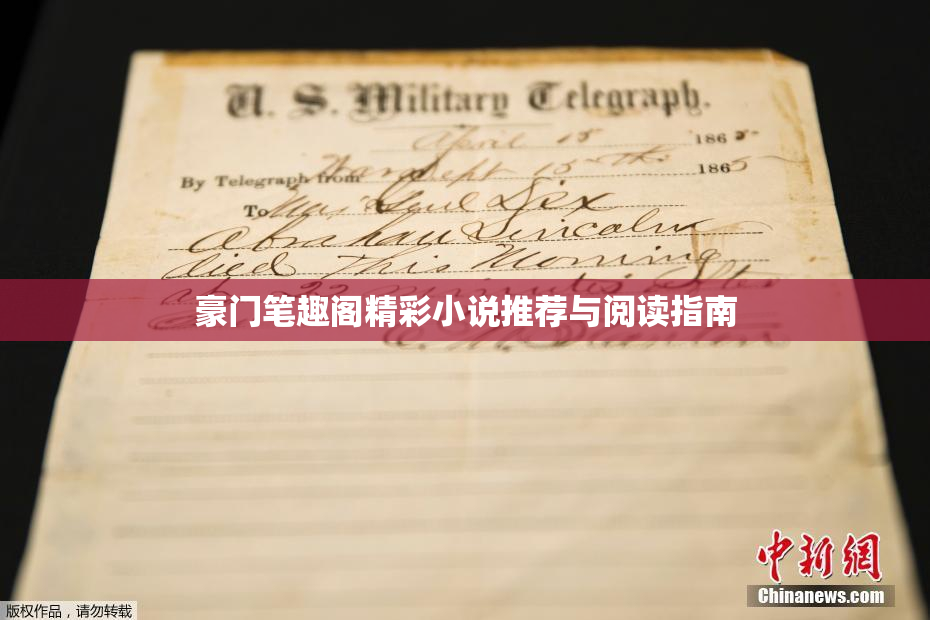 U. S. Military Telegraph.
April 15 1865
By Telegraph from War Dept 15th 1865
To Maj Genl Dix
Abraham Lincoln
died This Morning
at 22 minutes after
豪门笔趣阁精彩小说推荐与阅读指南
中新网
Chinanews.com
版权作品，请勿转载